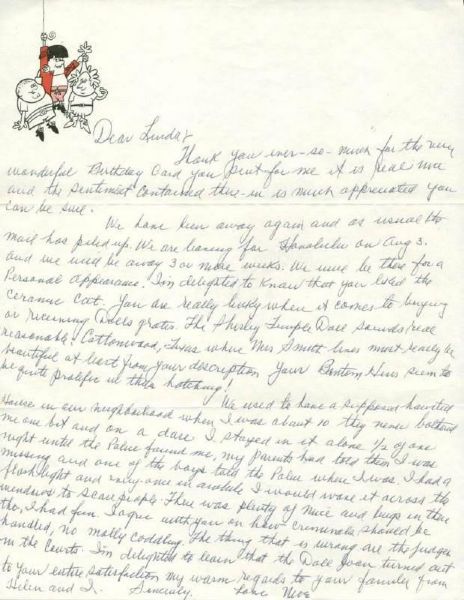 Dear Linda,
Thank you ever-so-much for the very
wonderful Birthday Card you sent for me it is real nice
and the sentiment contained there-in is much appreciated you
can be sure.
We have been away again and as usual the
mail has piled up. We are leaving for Honolulu on Aug 3.
and we will be away 3 or more weeks. We will be there for a
Personal Appearance. I'm delighted to know that you liked the
ceramic Cat. You are really lucky when it comes to buying
or receiving Dolls gratis. The Shirley Temple Doll sounds real
reasonable. Cottonwood, Texas where Mrs Smith lives must really be
beautiful at least from your description. Your Bantam Hens seem to
be quite prolific in their hatching!
We used to have a supposed haunted
House in our neighborhood when I was about 10 they never bothered
me one bit and on a dare I stayed in it alone 1/2 of one
night until the Police found me, my parents had told them I was
missing and one of the boys told the Police where I was. I had a
flashlight and every-once in awhile I would wave it across the
windows to scare people. There was plenty of Mice and bugs in there
tho, I had fun. I agree with you on how criminals should be
handled, no molly coddling. The thing that is wrong are the judges
in the Courts. I'm delighted to learn that the Doll Ivan turned out
to your entire satisfaction my warm regards to your family from
Helen and I. Sincerely, Love Moe